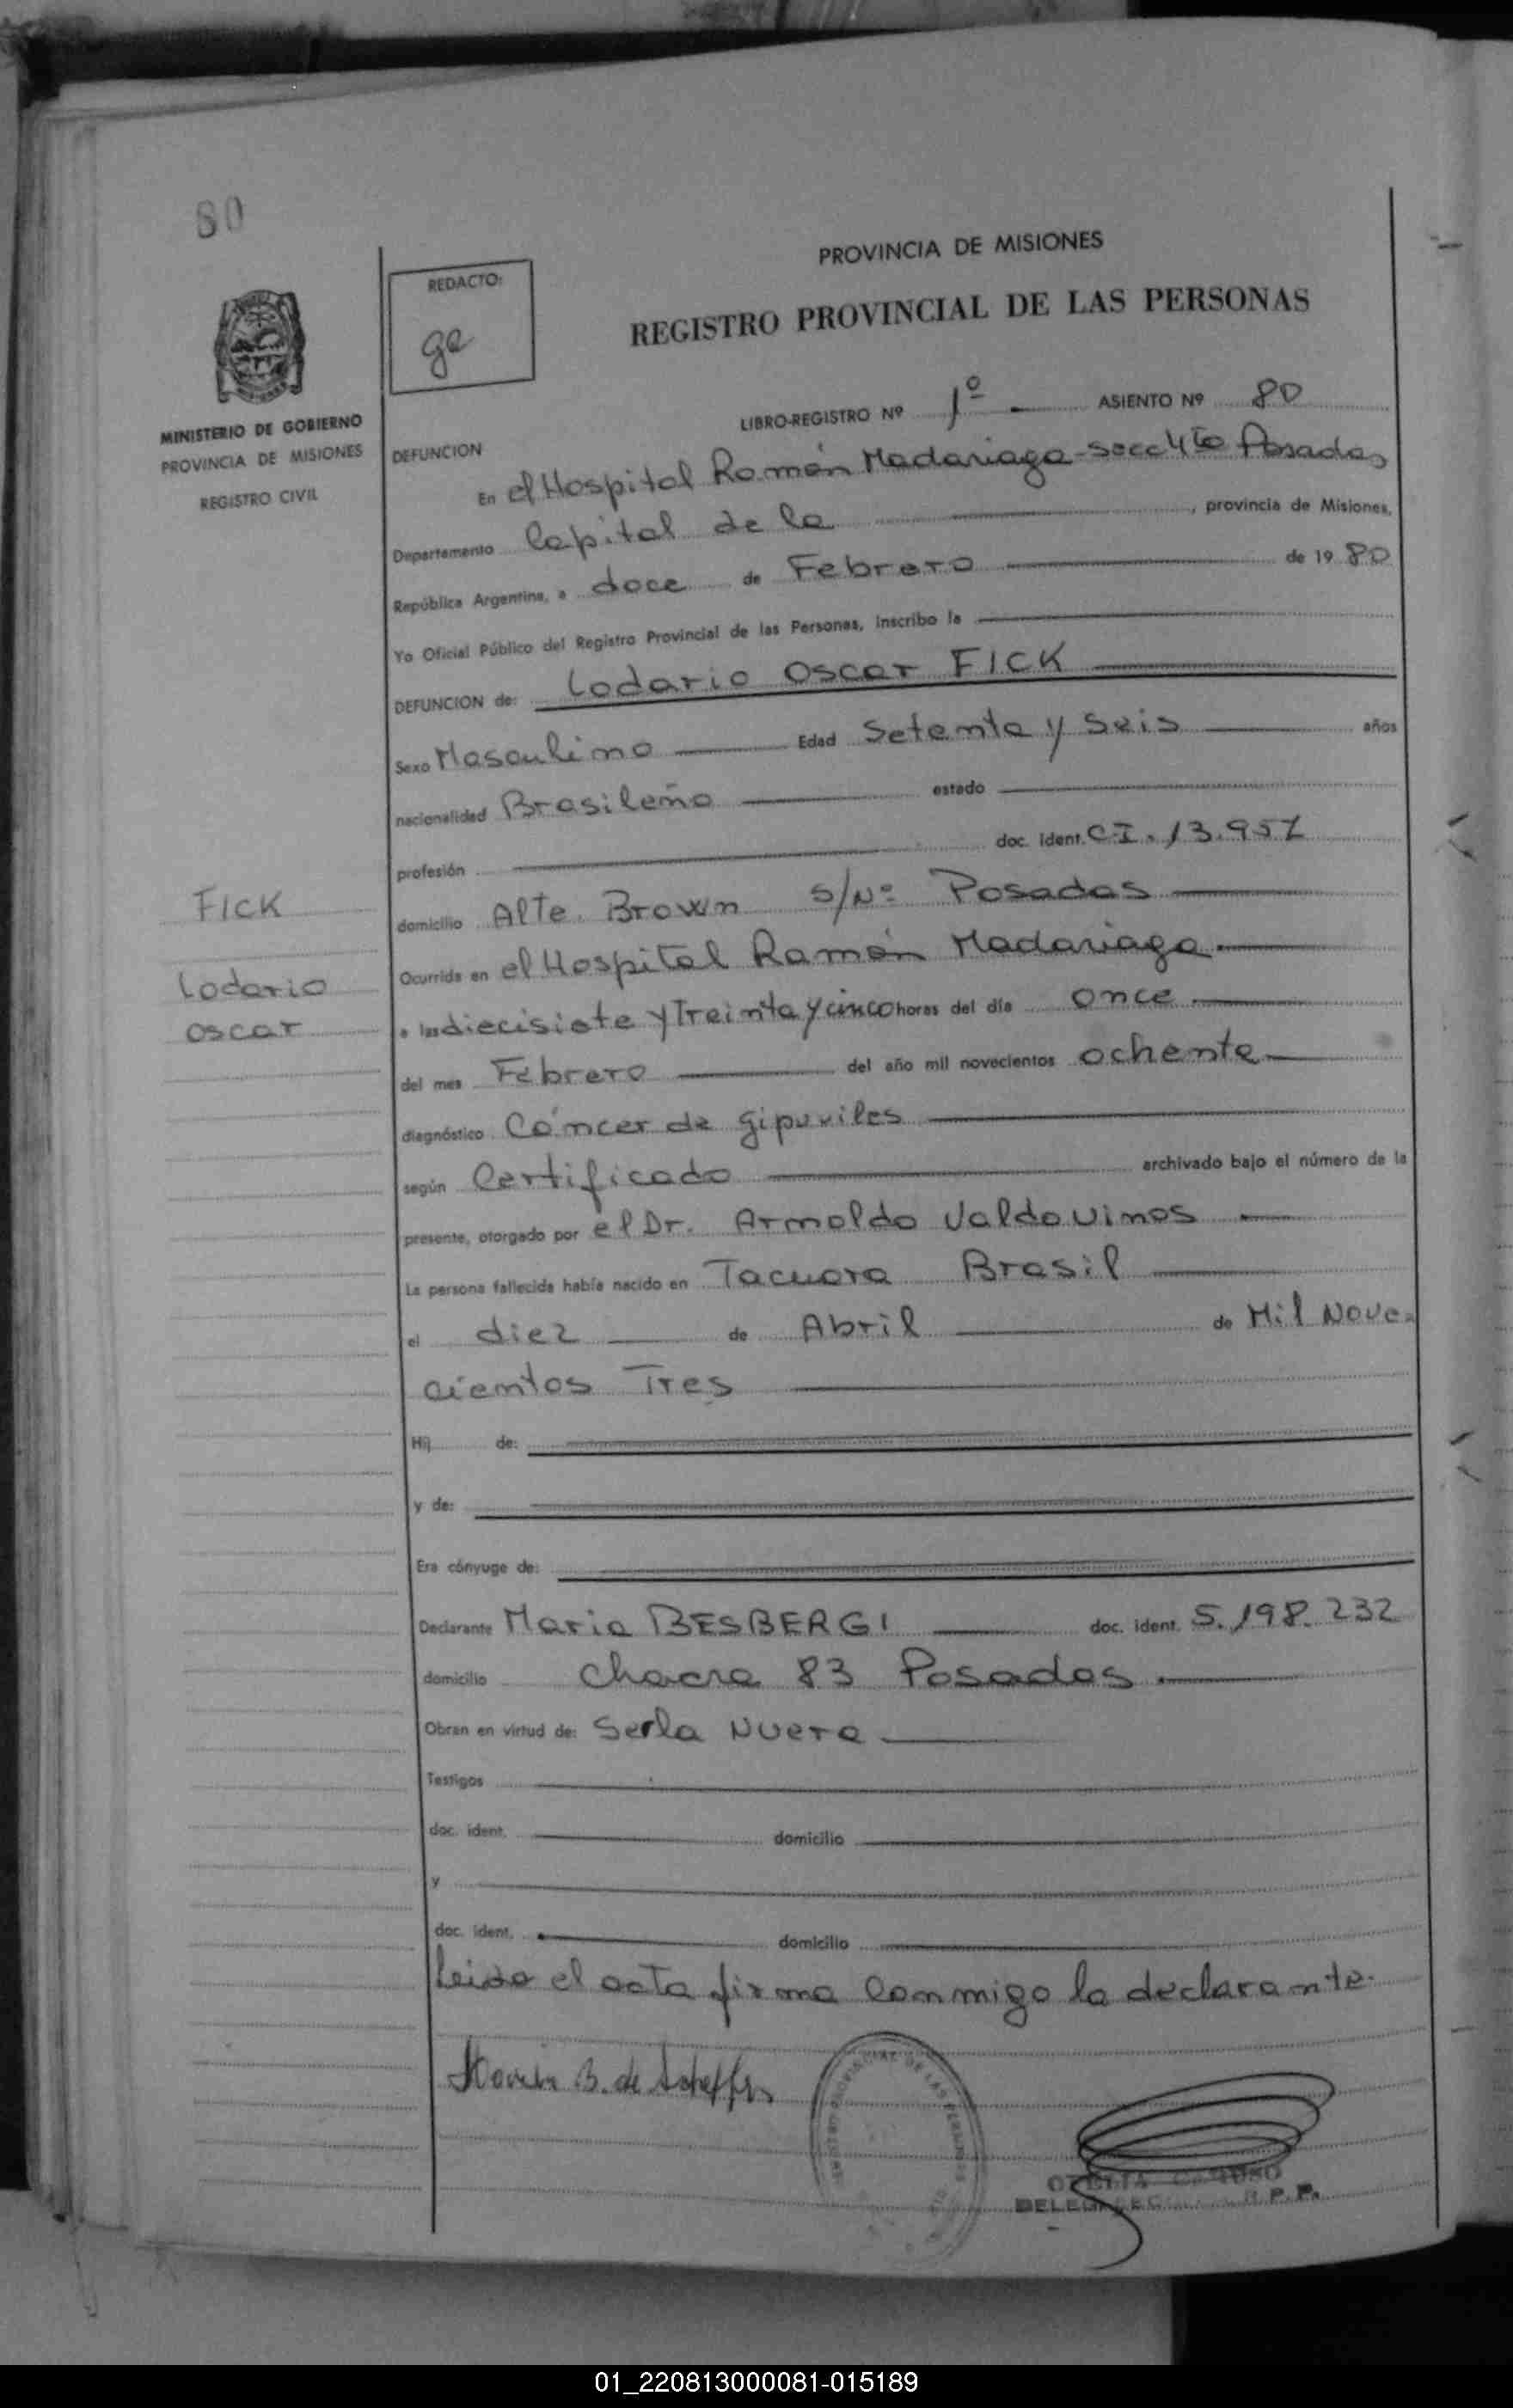 80
PROVINCIA DE MISIONES
REDACTO:
ge
REGISTRO PROVINCIAL DE LAS PERSONAS
MINISTERIO DE GOBIERNO
PROVINCIA DE MISIONES
REGISTRO CIVIL
LIBRO-REGISTRO Nº 1º ASIENTO Nº 80
DEFUNCION
En el Hospital Ramón Madariaga - Secc 4to Posadas
Departamento Capital de la , provincia de Misiones,
República Argentina, a doce de Febrero de 19 80
Yo Oficial Público del Registro Provincial de las Personas, inscribo la
DEFUNCION de: Lodario Oscar FICK
Sexo Masculino Edad Setenta y Seis años
nacionalidad Brasileño estado
profesión doc. ident. CI. 13.957
FICK
domicilio Alte. Brown S/Nº Posadas
Lodario
Ocurrida en el Hospital Ramón Madariaga.
Oscar
a las diecisiete y Treinta y cinco horas del día once
del mes Febrero del año mil novecientos ochenta
diagnóstico Cáncer de gipuviles
según Certificado archivado bajo el número de la
presente, otorgado por el Dr. Arnoldo Valdovinos
La persona fallecida había nacido en Tacuara Brasil
el diez de Abril de Mil Nove=
cientos Tres
Hij de:
y de:
Era cónyuge de:
Declarante Maria BESBERGI doc. ident. 5.198.232
domicilio Chacra 83 Posadas.
Obran en virtud de: Serla Nuera
Testigos
doc. ident. domicilio
y
doc. ident. domicilio
Leida el acta firma Conmigo la declarante.
B. de
R.P.P.
01_220813000081-015189